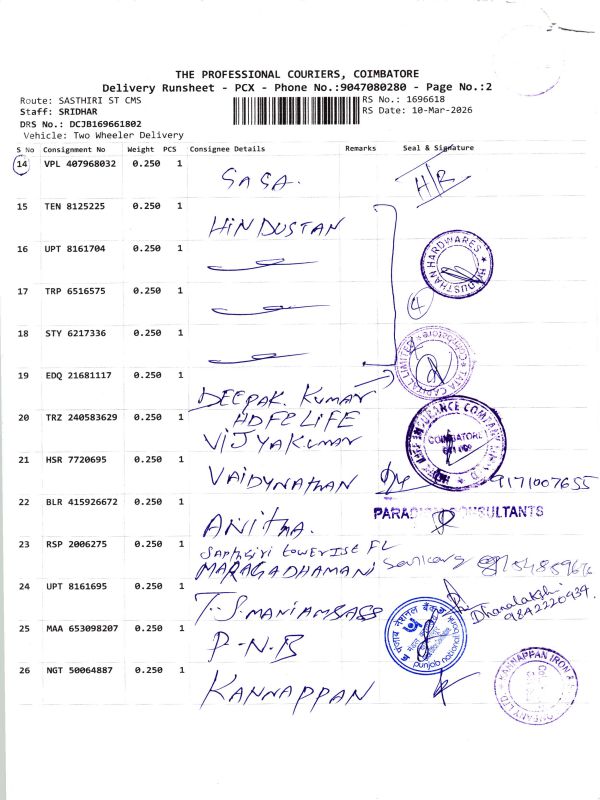 THE PROFESSIONAL COURIERS, COIMBATORE
Delivery Runsheet - PCX - Phone No.:9047080280 - Page No.:2
Route: SASTHIRI ST CMS
RS No.: 1696618
Staff: SRIDHAR
RS Date: 10-Mar-2026
DRS No.: DCJB169661802
Vehicle: Two Wheeler Delivery
S No Consignment No Weight PCS Consignee Details Remarks Seal & Signature
14 VPL 407968032 0.250 1
SaSa. H/R
15 TEN 8125225 0.250 1
HINDUSTAN
16 UPT 8161704 0.250 1
HINDUSTHAN HARDWARES
17 TRP 6516575 0.250 1
4
18 STY 6217336 0.250 1
TATA CAPITAL LIMITED
19 EDQ 21681117 0.250 1
DEEPAK. Kumar
20 TRZ 240583629 0.250 1
HDFC LIFE
VIJYAKUMAR
COIMBATORE
21 HSR 7720695 0.250 1
VAIDYNATHAN 9171007655
22 BLR 415926672 0.250 1
CONSULTANTS
ANITHA.
23 RSP 2006275 0.250 1
MARAGADHAMANI
24 UPT 8161695 0.250 1
T.S.MANIAMBASS
Dhanalakshi
9842220939.
25 MAA 653098207 0.250 1
P-N-B
punjab national bank
26 NGT 50064887 0.250 1
KANNAPPAN
KANNAPPAN IRON &